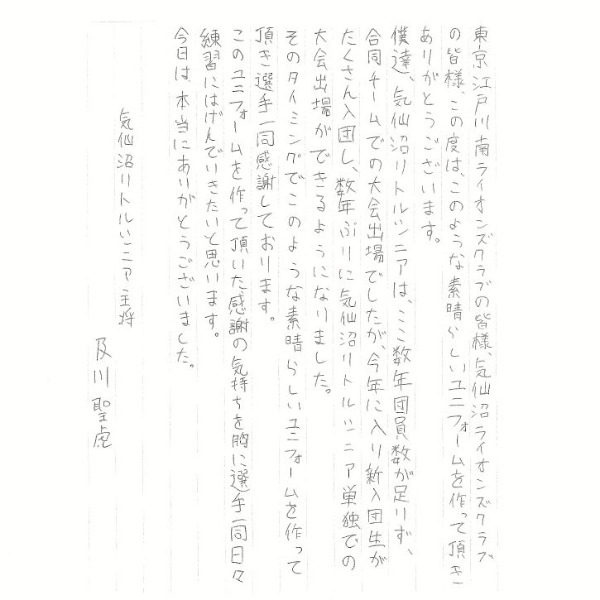 東京江戸川南ライオンズクラブの皆様、気仙沼ライオンズクラブ
の皆様、この度は、このような素晴らしいユニフォームを作って頂き
ありがとうございます。
僕達、気仙沼リトルシニアは、ここ数年団員数が足りず、
合同チームでの大会出場でしたが、今年に入り新入団生が
たくさん入団し、数年ぶりに気仙沼リトルシニア単独での
大会出場ができるようになりました。
そのタイミングでこのような素晴らしいユニフォームを作って
頂き選手一同感謝しております。
このユニフォームを作って頂いた感謝の気持ちを胸に選手一同日々
練習にはげんでいきたいと思います。
今日は、本当にありがとうございました。
気仙沼リトルシニア主将
及川聖虎